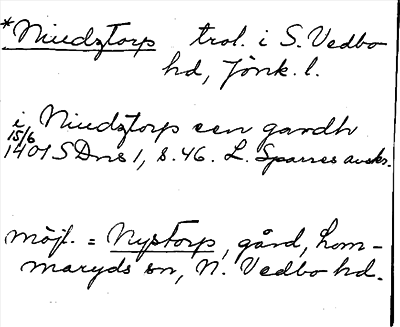 *Niudztorp trol. i S. Vedbo
hd, Jönk. l.
i Niudztorp een gardh
15/6
1401 SDns 1, s. 46. L. Sparres avskr.
möjl. = Nystorp, gård, Lom-
maryds sn, N. Vedbo hd.